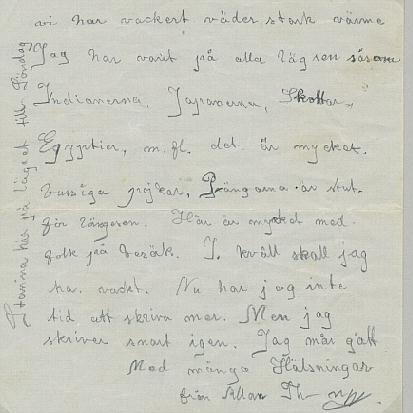 vi har vackert väder stark värme
Jag har varit på alla lägren såsom
Indianerna, Japanerna, Skottar,
Egyptier, m.fl. det är mycket.
bussiga pojkar, Prängarna är slut.
för längesen. Här är mycket med
folk på besök. I kväll skall jag
ha vakt. Nu har jag inte
tid att skriva mer. Men jag
skriver snart igen. Jag mår gått
Med många Hälsningar
från Allan Th
Stanna här på läget till Söndag